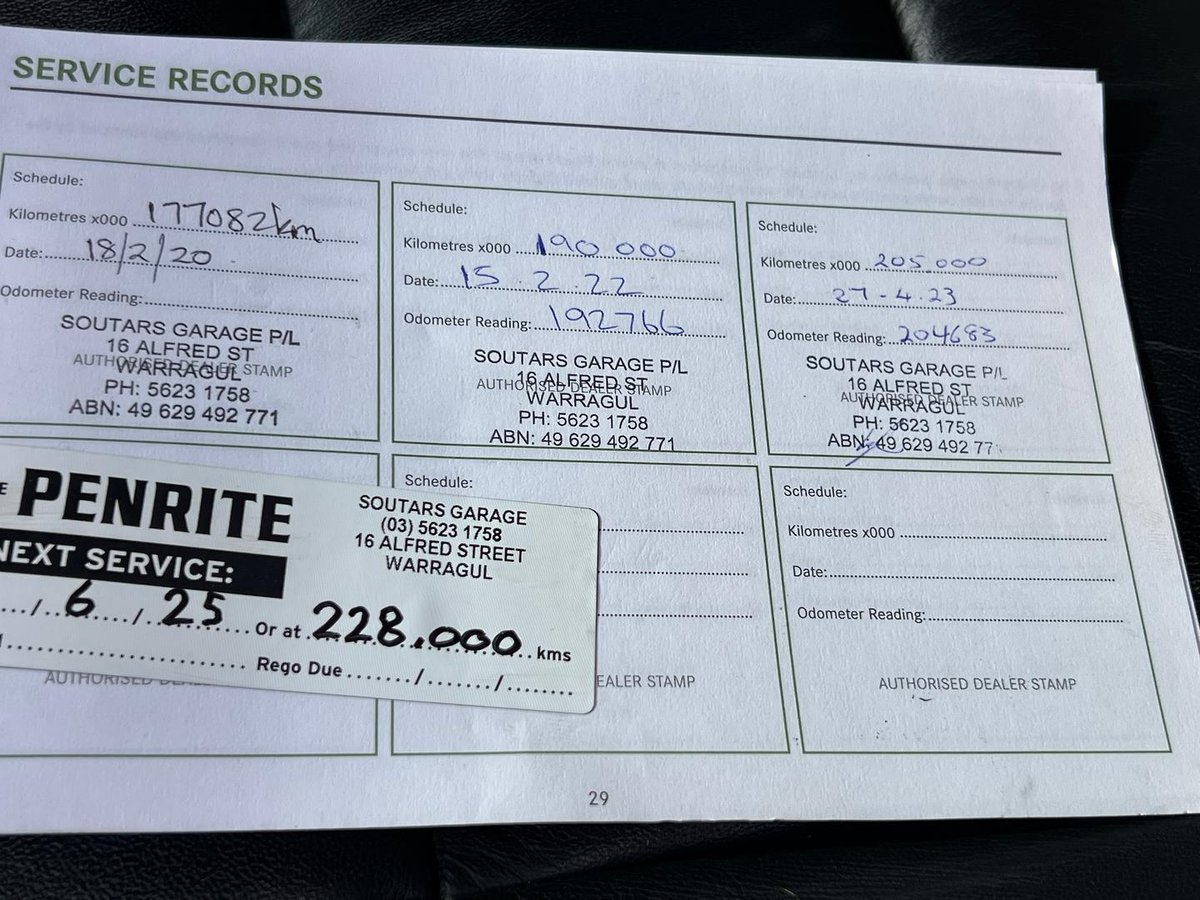 SERVICE RECORDS
Schedule:
Kilometres x000 177082km
Date: 18/2/20
Odometer Reading:
SOUTARS GARAGE P/L
16 ALFRED ST
AUTHORISED DEALER STAMP
WARRAGUL
PH: 5623 1758
ABN: 49 629 492 771
Schedule:
Kilometres x000 190 000
Date: 15.2.22
Odometer Reading: 192766
SOUTARS GARAGE P/L
16 ALFRED ST
AUTHORISED DEALER STAMP
WARRAGUL
PH: 5623 1758
ABN: 49 629 492 771
Schedule:
Kilometres x000 205.000
Date: 27-4.23
Odometer Reading: 204683
SOUTARS GARAGE P/L
16 ALFRED ST
AUTHORISED DEALER STAMP
WARRAGUL
PH: 5623 1758
ABN: 49 629 492 77
PENRITE
NEXT SERVICE:
/ 6 / 25 Or at 228.000 kms
Rego Due / /
SOUTARS GARAGE
(03) 5623 1758
16 ALFRED STREET
WARRAGUL
Schedule:
EALER STAMP
Schedule:
Kilometres x000
Date:
Odometer Reading:
AUTHORISED DEALER STAMP
29